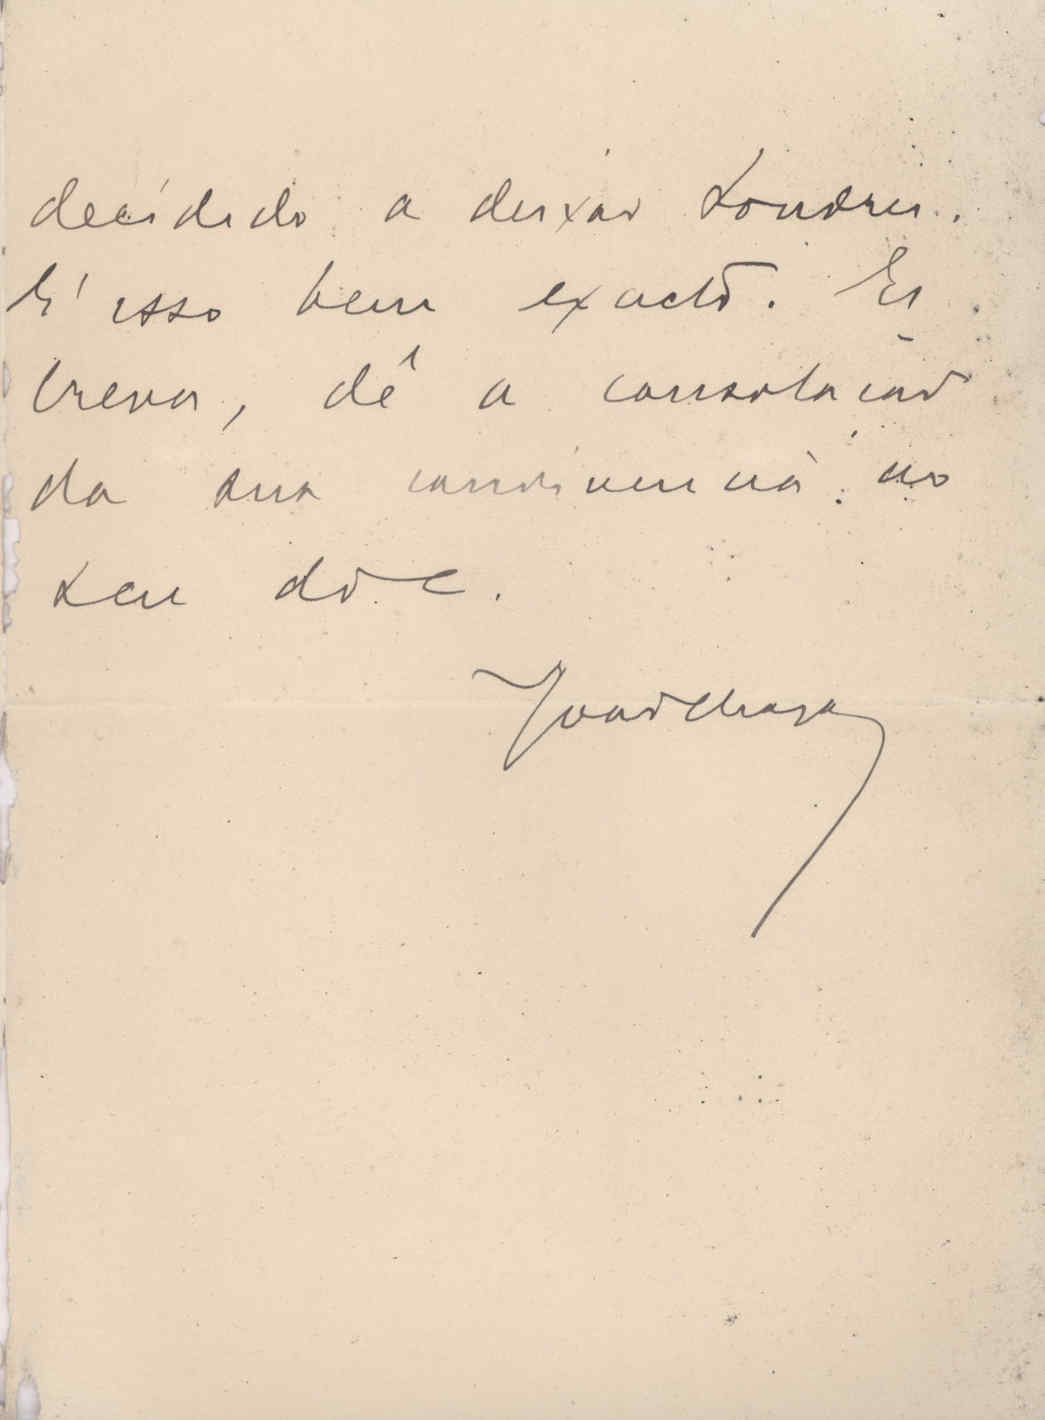 decidido a deixar Londres.
É isso bem exacto. Es
creva, dê a consolação
da sua convivencia ao
seu do C.
João Chagas